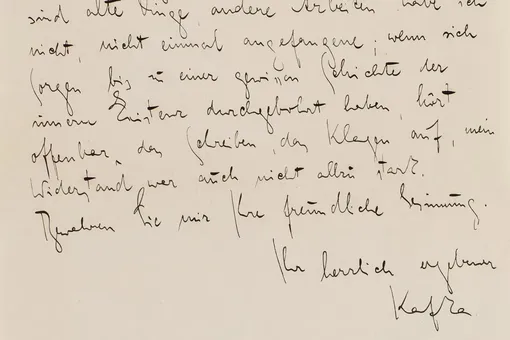 sind alte Dinge andere Arbeiten habe ich
nicht, nicht einmal angefangene; wenn sich
Sorgen bis zu einer gewissen Schichte der
innern Existenz durchgebohrt haben, hört
offenbar das Schreiben, das Klagen auf, mein
Widerstand war auch nicht allzu stark.
Bewahren Sie mir Ihre freundliche Gesinnung.
Ihr herzlich ergebener
Kafka